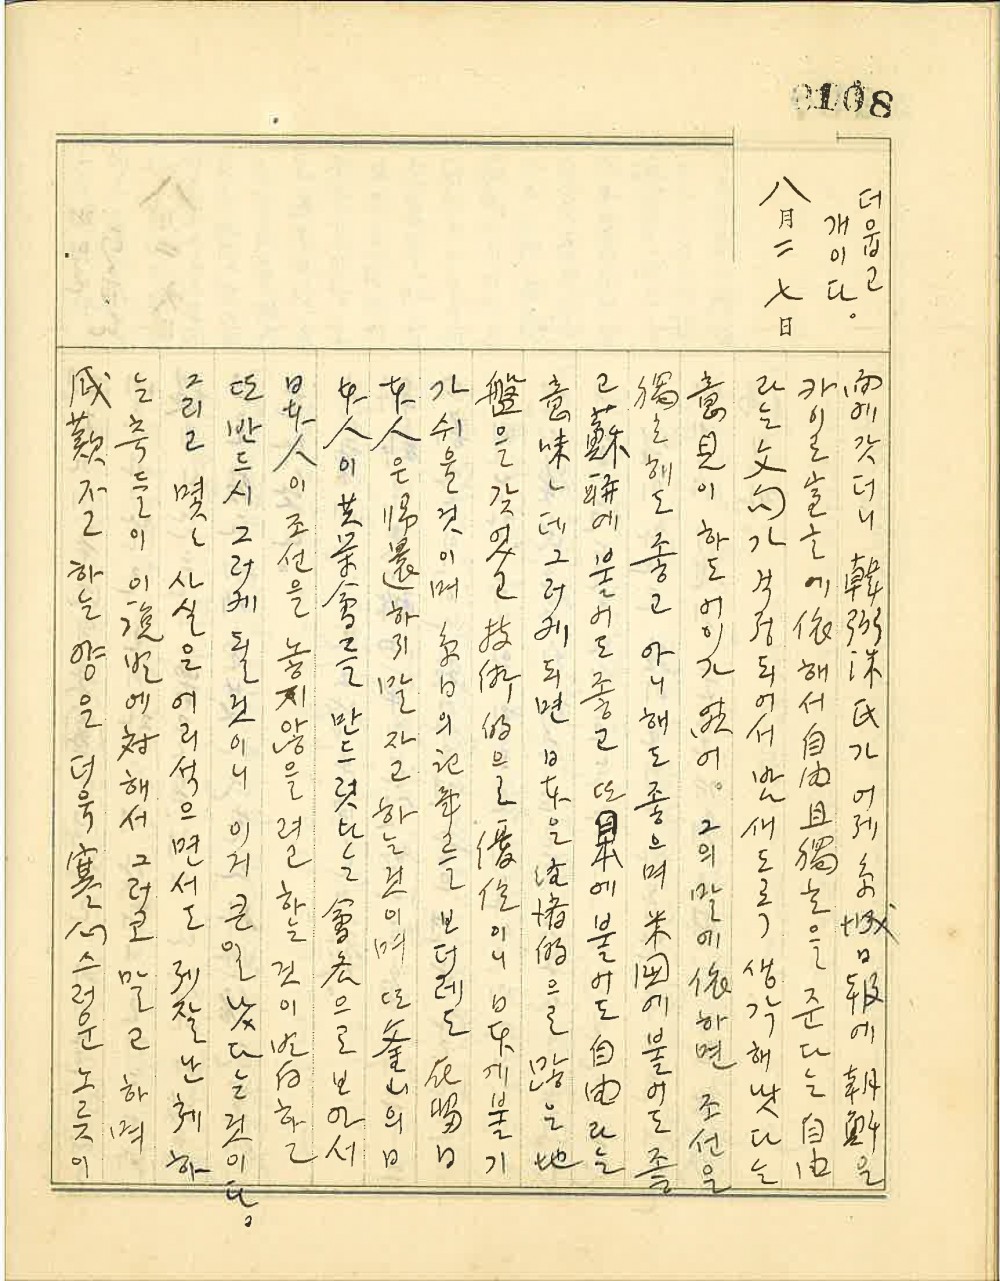 8108
더웁고
개이다。
八月二七日
面에 갓더니 韓弼洙氏가 어제 京城日報에 朝鮮은
카이로宣言에 依해서 自由且獨立을 준다는 自由
라는 文句가 걱정되어서 밤새도록 생각해 낫다는
意見이 하도 어이가 없어。 그의 말에 依하면 조선은
獨立해도 좋고 아니해도 좋으며 米國에 붙어도 좋
고 蘇聯에 붙어도 좋고 또 日本에 붙어도 自由라는
意味ㄴ데 그러케 되면 日本은 經濟的으로 많은 地
盤을 갖엇고 技術的으로 優位이니 日本게 붙기
가 쉬울 것이며 京日의 記事를 보더레도 在留日
本人은 歸還하지 말자고 하는 것이며 또 釜山의 日
本人이 共榮會를 만드럿다는 會名으로 보아서
日本人이 조선을 놓지 않을려고 하는 것이 明白하고
또 반드시 그러케 될 것이니 이게 큰일 낫다는 것이다。
그리고 몇ㄴ 사실은 어리석으면서도 제 잘난 체 하
는 축들이 이 說明에 対해서 그러코 말고 하며
感歎지고 하는 양은 더욱 寒心스러운 노릇이